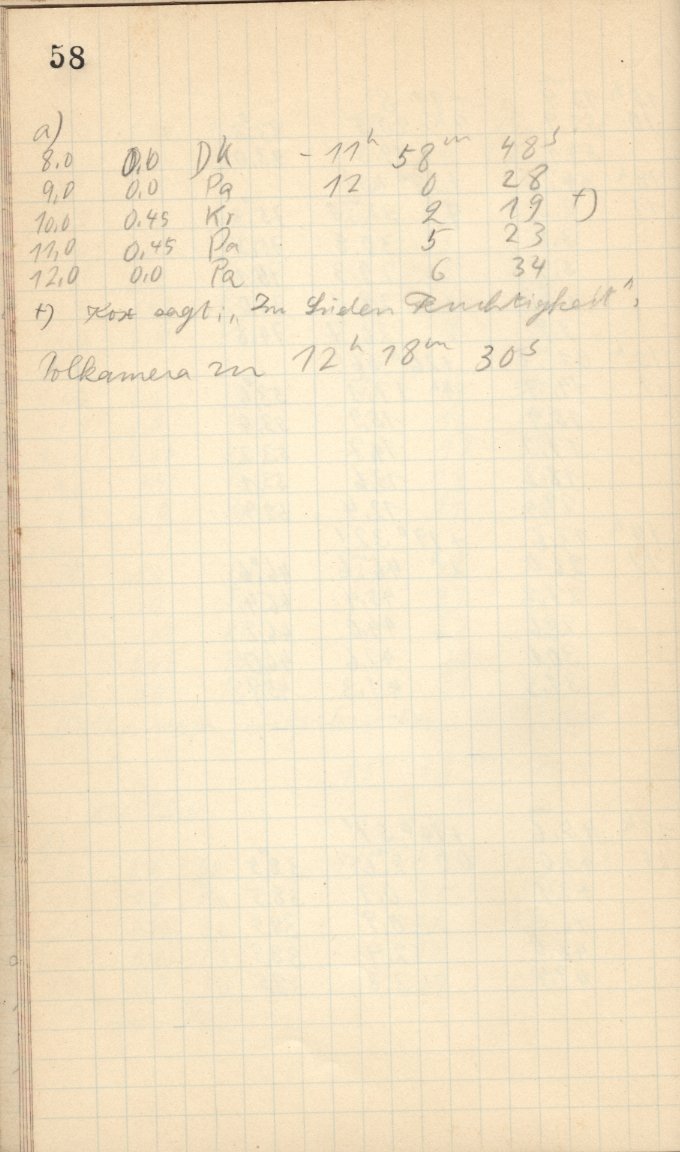 58
a)
8,0 0,0 DK - 11h 58m 48s
9,0 0,0 Pa 12 0 28
10,0 0,45 Kr 2 19 +)
11,0 0,45 Pa 5 23
12,0 0,0 Pa 6 34
+) Kox sagt: „Im Süden Feuchtigkeit“.
Polkamera zu 12h 18m 30s